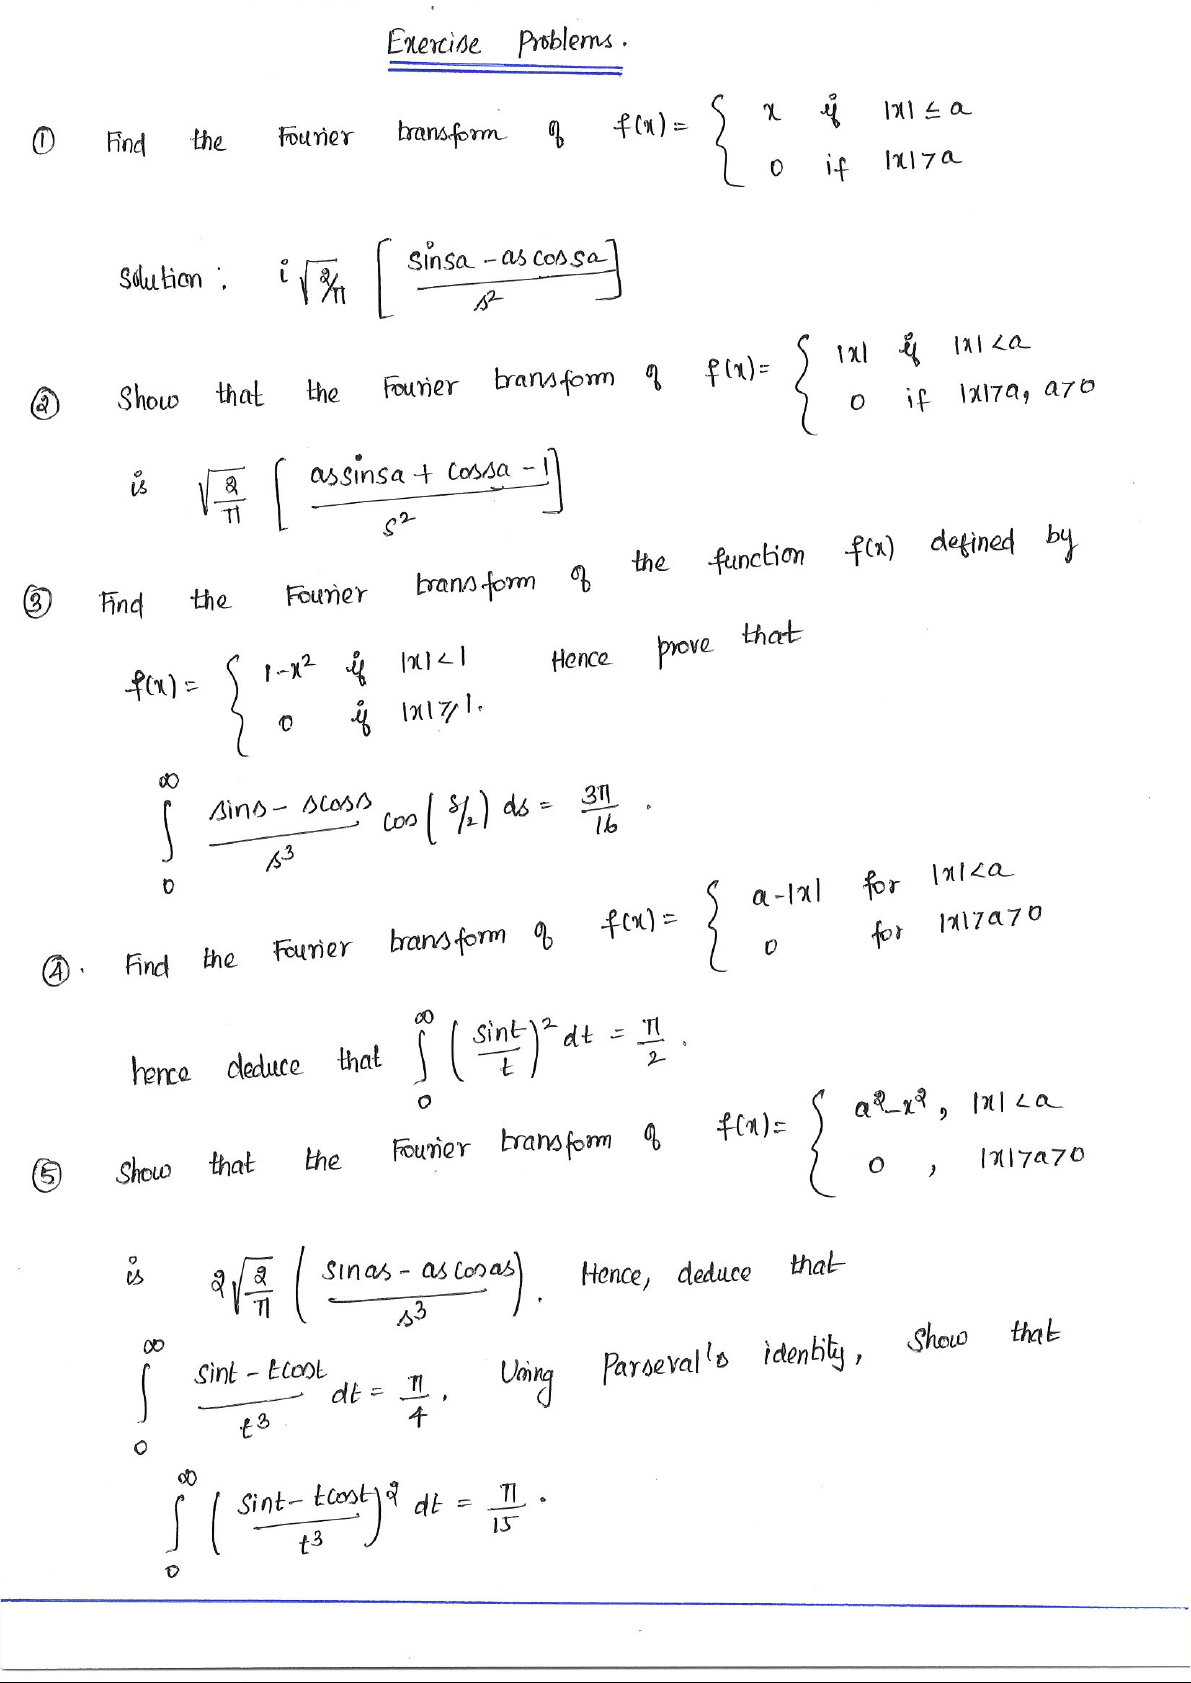 Exercise Problems.
① Find the Fourier transform of f(x) = { x if |x| ≤ a
0 if |x| > a
Solution : i √2/π [ sinsa - as cossa / s² ]
② Show that the Fourier transform of f(x) = { |x| if |x| < a
0 if |x| > a, a > 0
is √2/π [ as sinsa + cossa - 1 / s² ]
③ Find the Fourier transform of the function f(x) defined by
f(x) = { 1-x² if |x| < 1 Hence prove that
0 if |x| ≥ 1.
∫₀^∞ sins - scoss / s³ cos (s/2) ds = 3π/16 .
④. Find the Fourier transform of f(x) = { a-|x| for |x| < a
0 for |x| > a > 0
hence deduce that ∫₀^∞ ( sint / t )² dt = π/2 .
⑤ Show that the Fourier transform of f(x) = { a²-x² , |x| < a
0 , |x| > a > 0
is 2 √2/π ( sinas - as cosas / s³ ) . Hence, deduce that
∫₀^∞ sint - tcost / t³ dt = π/4 . Using Parseval's identity, Show that
∫₀^∞ ( sint - tcost / t³ )² dt = π/15 .